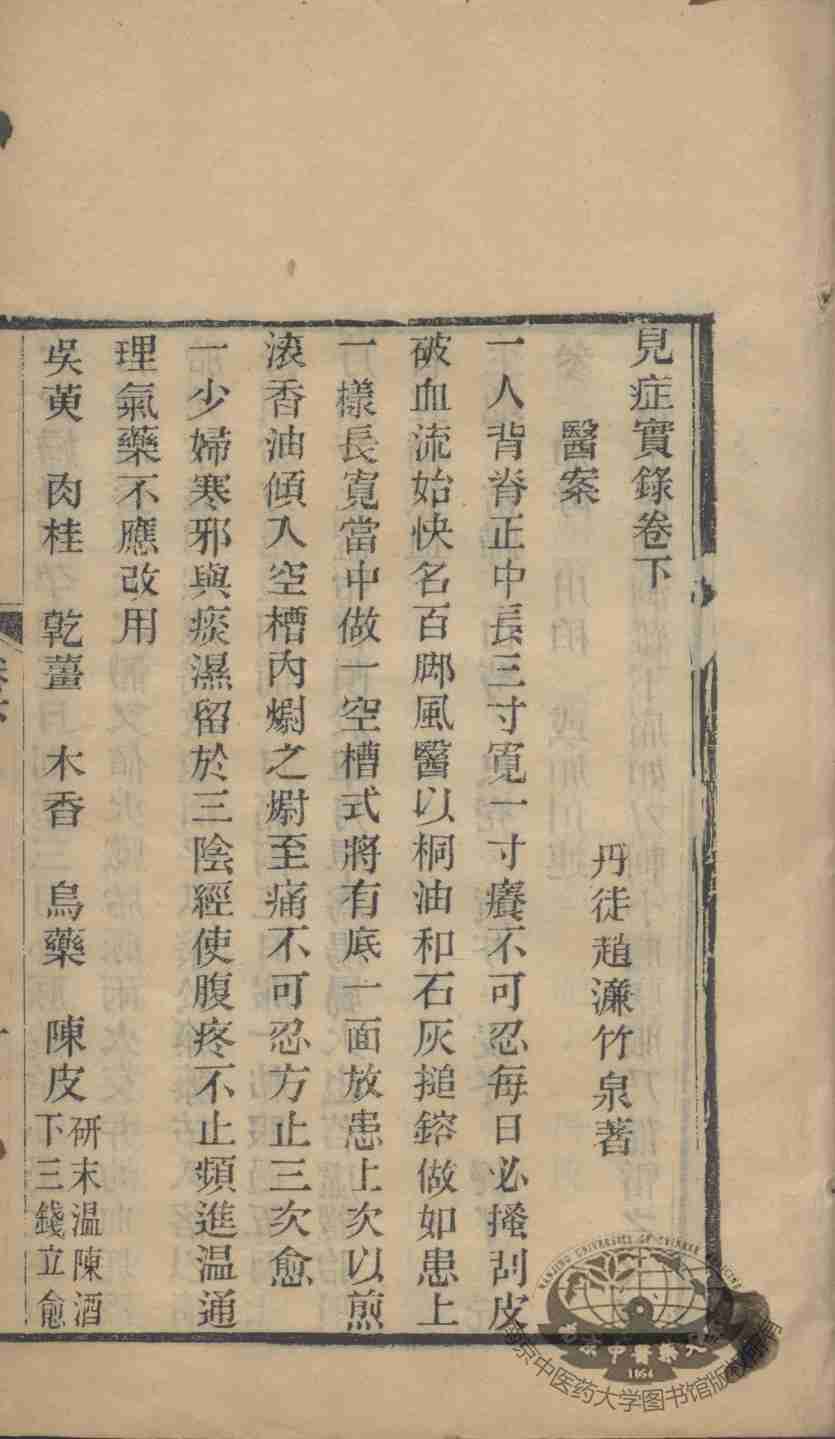 見症實錄卷下
醫案
丹徒趙濂竹泉著
一人背脊正中長三寸寬一寸癢不可忍每日必搔刮皮
破血流始快名百脚風醫以桐油和石灰搥鎔做如患上
一樣長寬當中做一空槽式將有底一面放患上次以煎
滚香油傾入空槽内爛之爛至痛不可忍方止三次愈
一少婦寒邪與痰濕留於三陰經使腹疼不止頻進温通
理氣藥不應改用
吳萸 肉桂 乾薑 木香 烏藥 陳皮 研末温陳酒下三錢立愈
南京中医药大学图书馆版权所有
NANJING UNIVERSITY OF CHINESE MEDICINE
1954